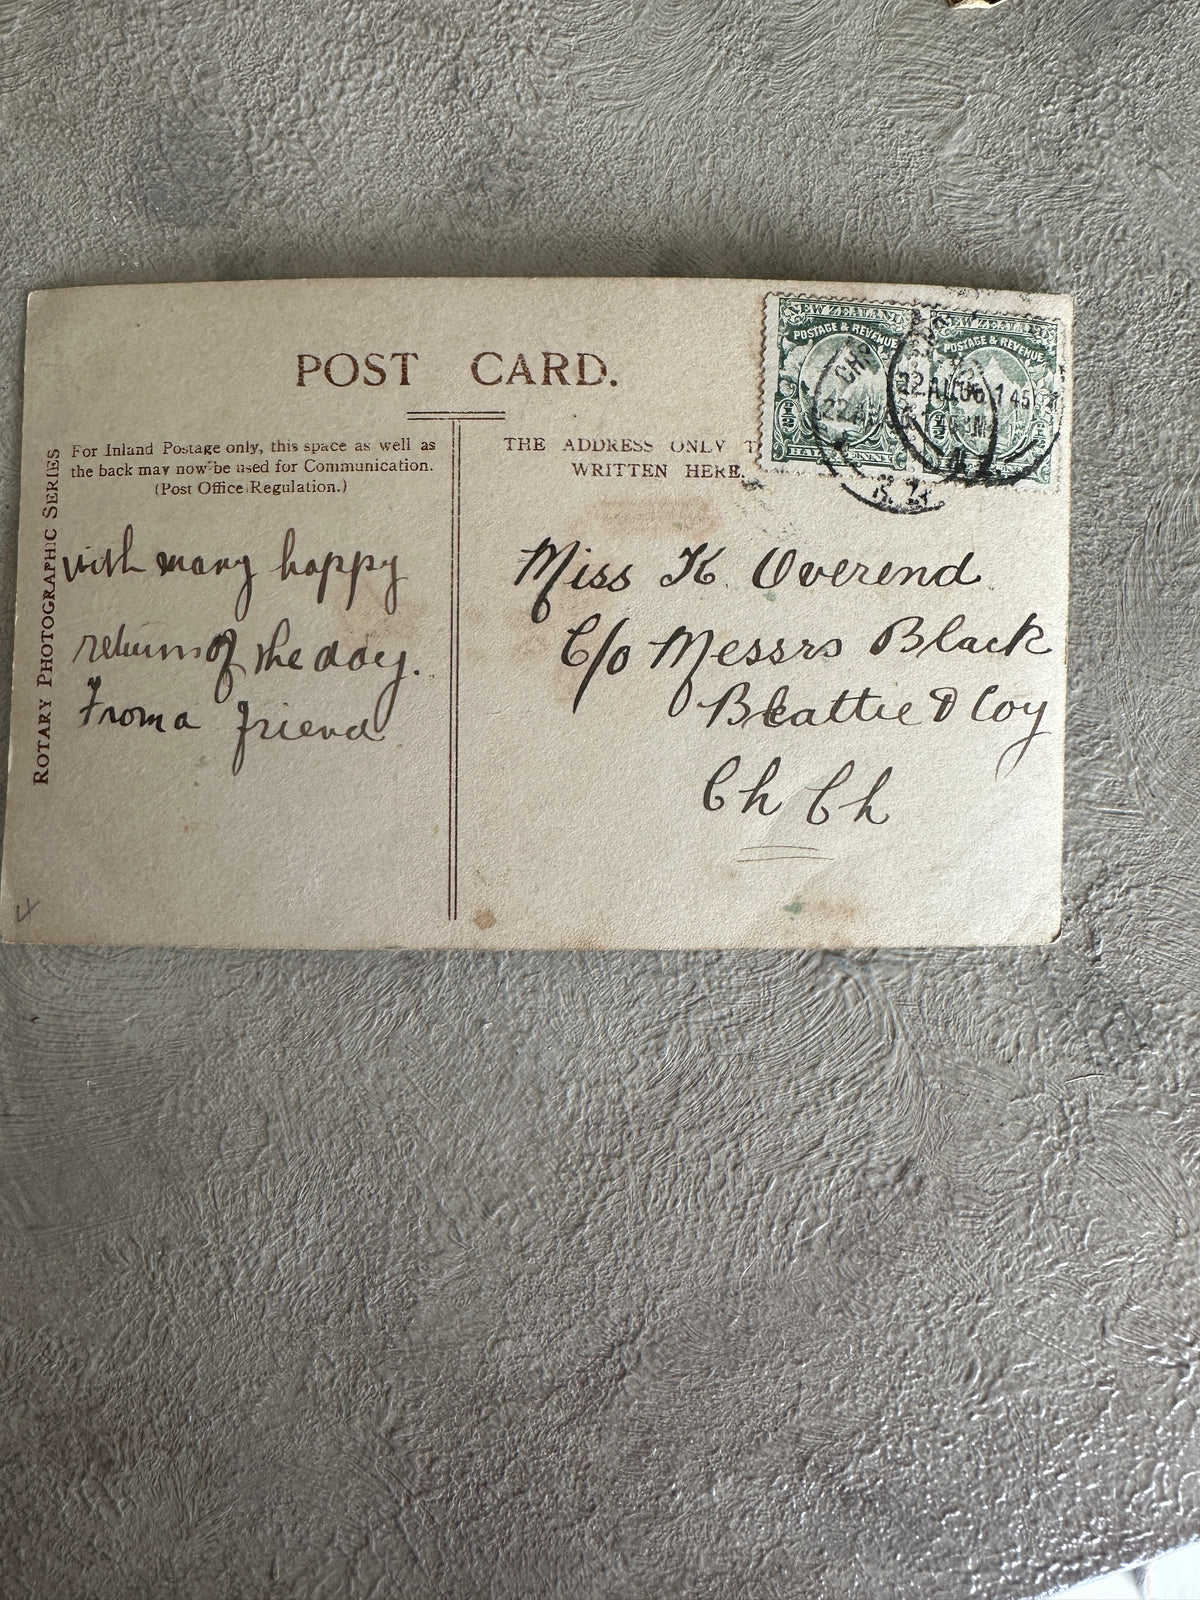 POST CARD.
ROTARY PHOTOGRAPHIC SERIES
For Inland Postage only, this space as well as
the back may now be used for Communication.
(Post Office Regulation.)
with many happy
returns of the day.
From a friend
THE ADDRESS ONLY T
WRITTEN HERE.
NEW ZEALAND
POSTAGE & REVENUE
HALF PENNY
NEW ZEALAND
POSTAGE & REVENUE
22 AU 06
1 45
Miss K. Overend
C/o Messrs Black
Beattie & Coy
Ch Ch
4